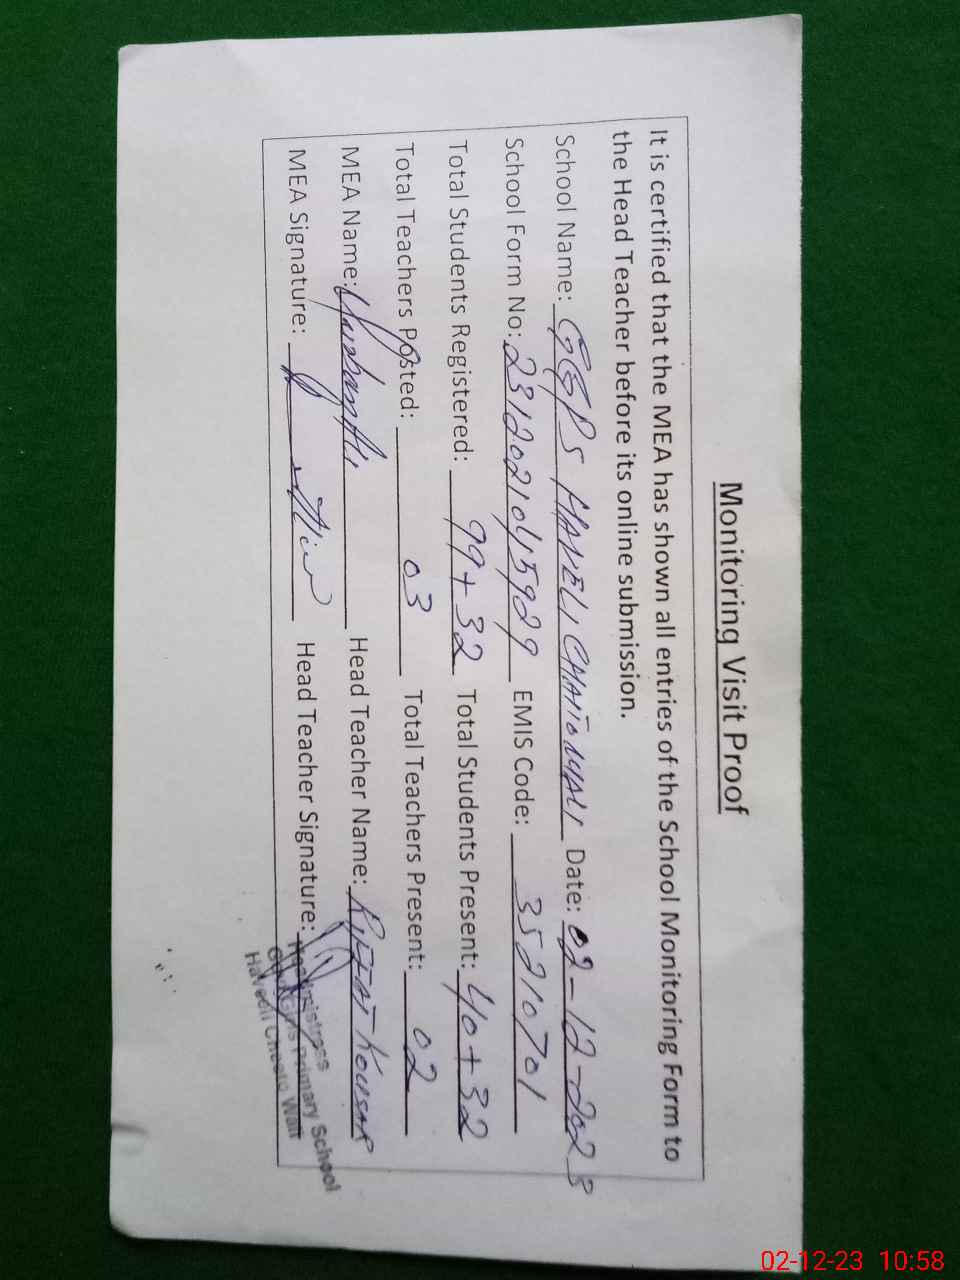 Monitoring Visit Proof
It is certified that the MEA has shown all entries of the School Monitoring Form to
the Head Teacher before its online submission.
School Name: GGPS HAVELI CHHATO WALI Date: 02-12-2023
School Form No: 2312021045929 EMIS Code: 35210701
Total Students Registered: 99+32 Total Students Present: 40+32
Total Teachers Posted: 03 Total Teachers Present: 02
MEA Name: Head Teacher Name: RIFFAT KOUSAR
MEA Signature: Head Teacher Signature:
Headmistress
Govt. Girls Primary School
Haveeli Chato Wali
02-12-23 10:58